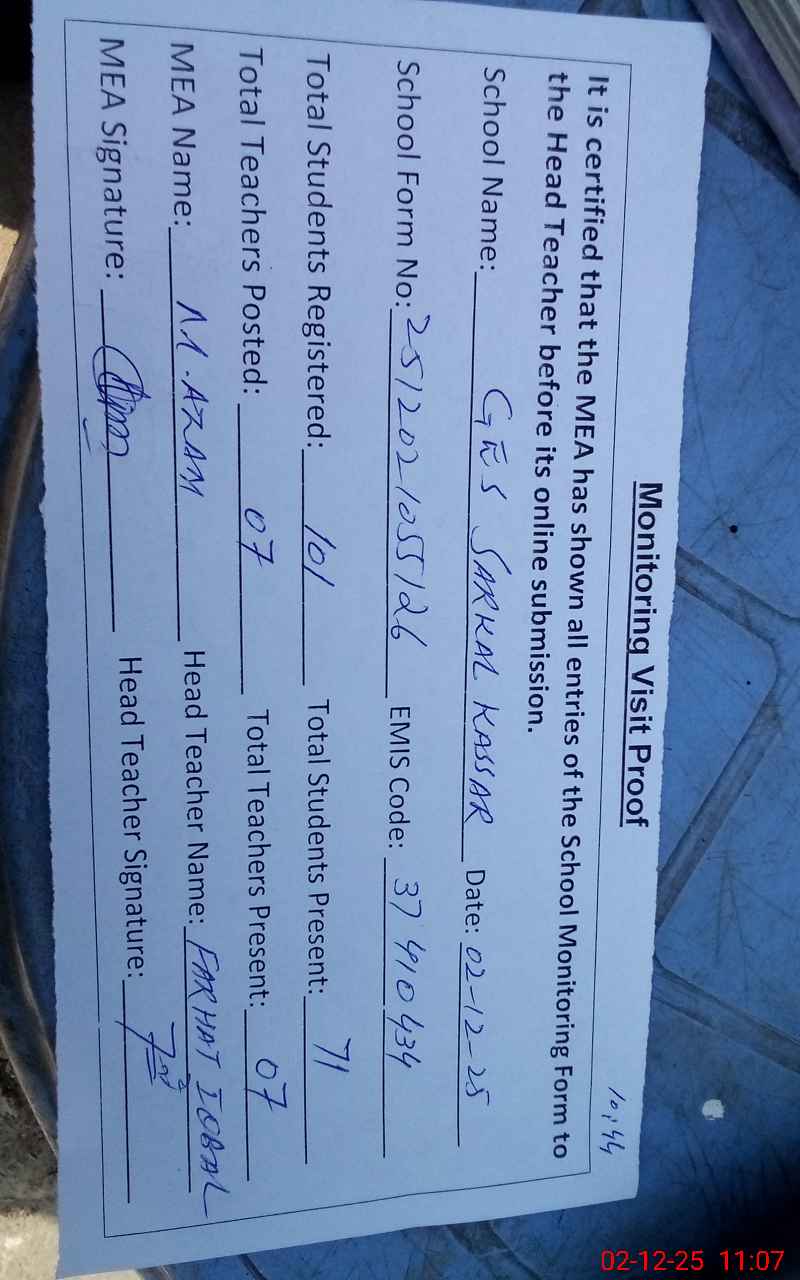 10:44
Monitoring Visit Proof
It is certified that the MEA has shown all entries of the School Monitoring Form to
the Head Teacher before its online submission.
School Name: GES SARKAL KASSAR Date: 02-12-25
School Form No: 2512021055126 EMIS Code: 37410434
Total Students Registered: 101 Total Students Present: 71
Total Teachers Posted: 07 Total Teachers Present: 07
MEA Name: M. AZAM Head Teacher Name: FARHAT IQBAL
MEA Signature: Head Teacher Signature:
02-12-25 11:07